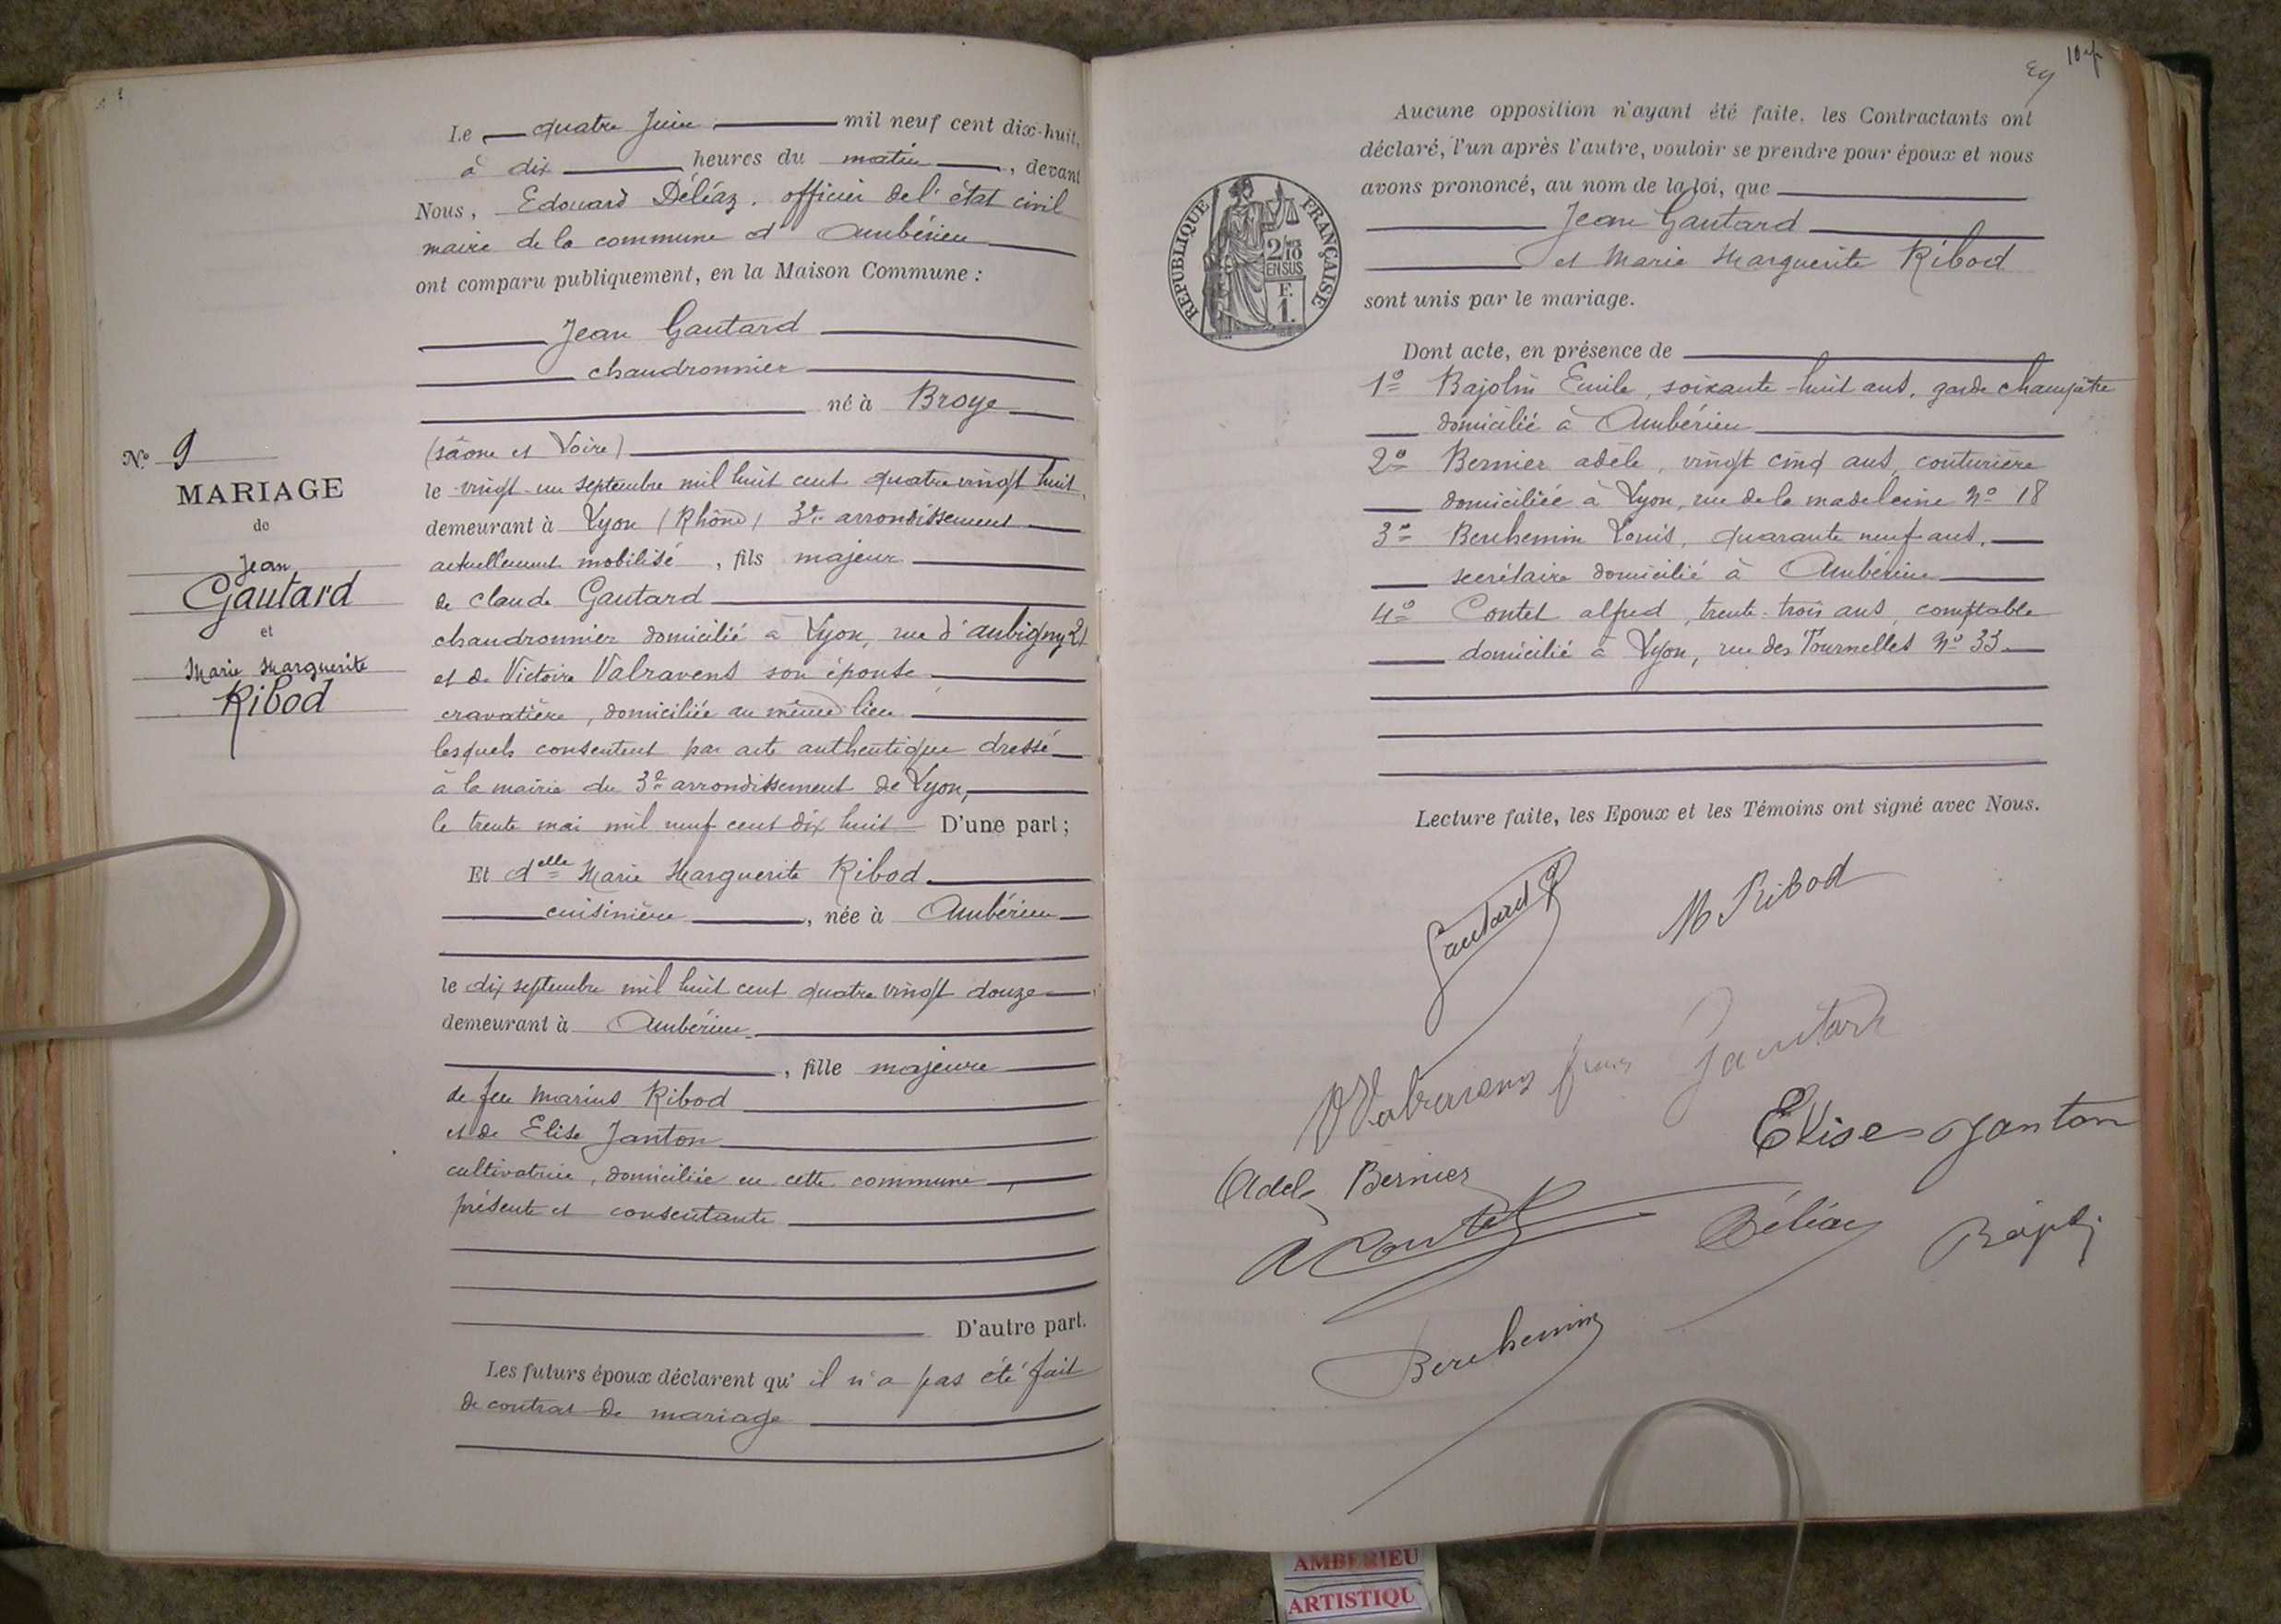 Le quatre Juin mil neuf cent dix-huit,
à dix heures du matin, devant
Nous, Edouard Déléaz, officier de l'état civil
maire de la commune d'Ambérieu
ont comparu publiquement, en la Maison Commune :
Jean Gautard
chaudronnier
né à Broye
(Sâone et Loire)
le vingt-un septembre mil huit cent quatre vingt huit,
demeurant à Lyon (Rhône) 3e arrondissement
actuellement mobilisé, fils majeur
de Claude Gautard
chaudronnier domicilié à Lyon, rue d'aubigny 21
et de Victoire Valravens son épouse
cravatière, domiciliée au même lieu
lesquels consentent par acte authentique dressé
à la mairie du 3e arrondissement de Lyon,
le trente mai mil neuf cent dix huit D'une part ;
Et delle Marie Marguerite Ribod
cuisinière, née à Ambérieu
le dix septembre mil huit cent quatre vingt douze
demeurant à Ambérieu
, fille majeure
de feu Marius Ribod
et de Elise Janton
cultivatrice, domiciliée en cette commune,
présente et consentante
D'autre part.
Les futurs époux déclarent qu'il n'a pas été fait
de contrat de mariage
N° 9
MARIAGE
de
Jean
Gautard
et
Marie Marguerite
Ribod
Aucune opposition n'ayant été faite, les Contractants ont
déclaré, l'un après l'autre, vouloir se prendre pour époux et nous
avons prononcé, au nom de la loi, que
Jean Gautard
et Marie Marguerite Ribod
sont unis par le mariage.
RÉPUBLIQUE FRANÇAISE
2/10
EN SUS
F.
1.
Dont acte, en présence de
1° Bajolin Emile, soixante-huit ans, garde champêtre
domicilié à Ambérieu
2° Bernier adèle, vingt cinq ans, couturière
domiciliée à Lyon, rue de la madeleine N° 18
3° Berchemin Louis, quarante neuf ans,
secrétaire domicilié à Ambérieu
4° Contet alfred, trente-trois ans, comptable
domicilié à Lyon, rue des Tournelles N° 33
Lecture faite, les Epoux et les Témoins ont signé avec Nous.
Gautard J
M Ribod
V Valravens Gautard
Elise Janton
Adele Bernier
A Contet
Déléaz
Berchemin
AMBERIEU
ARTISTIQU